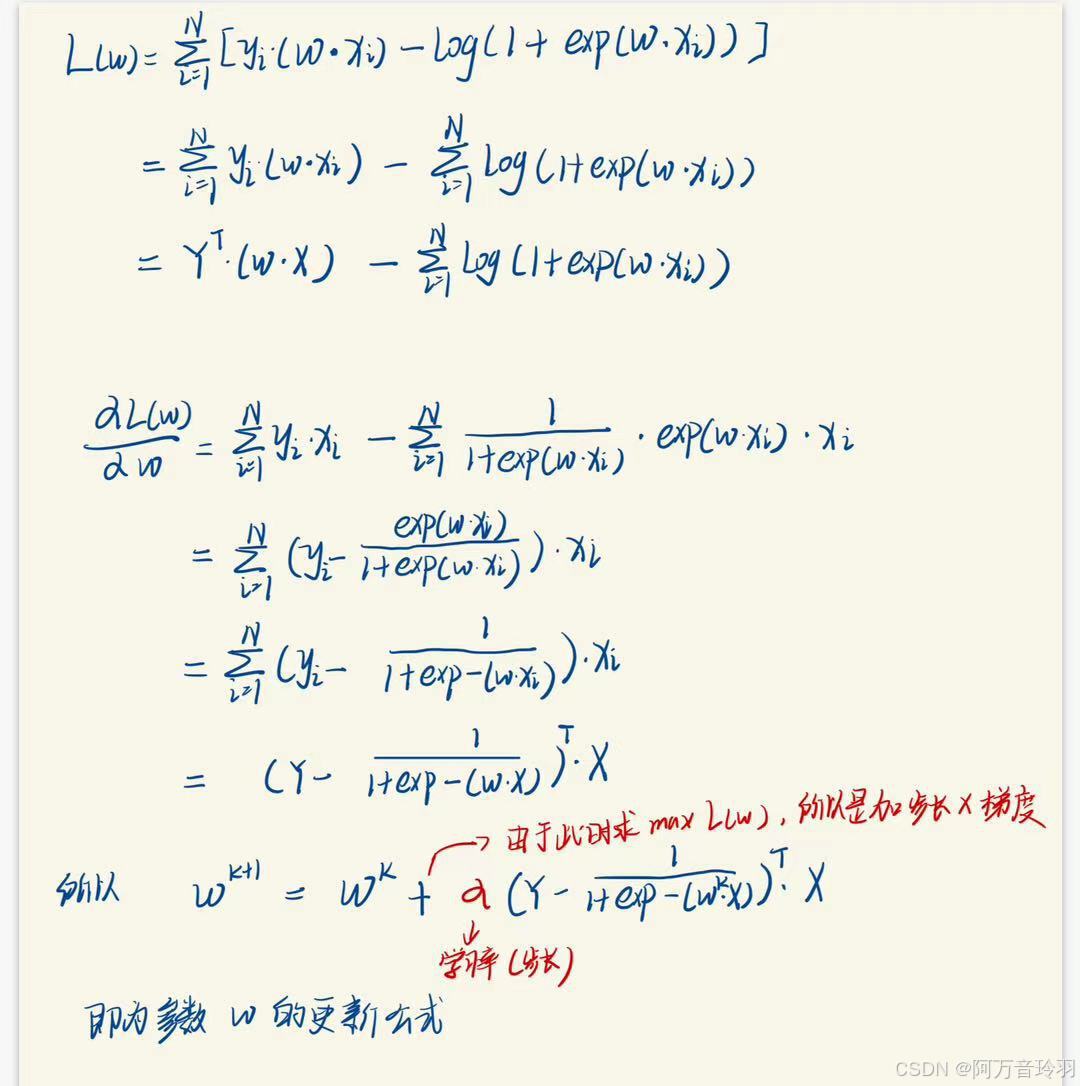 L(w)=∑_{i=1}^{N}[y_i·(w·x_i)-log(1+exp(w·x_i))]
=∑_{i=1}^{N}y_i·(w·x_i)-∑_{i=1}^{N}log(1+exp(w·x_i))
=Y^T·(w·X)-∑_{i=1}^{N}log(1+exp(w·x_i))
∂L(w)/∂w=∑_{i=1}^{N}y_i·x_i-∑_{i=1}^{N}1/(1+exp(w·x_i))·exp(w·x_i)·x_i
=∑_{i=1}^{N}(y_i-exp(w·x_i)/(1+exp(w·x_i)))·x_i
=∑_{i=1}^{N}(y_i-1/(1+exp-(w·x_i)))·x_i
=(Y-1/(1+exp-(w·X)))^T·X
→由于此时求max L(w),所以是加步长×梯度
所以 w^{k+1}=w^k+α(Y-1/(1+exp-(w^k·X)))^T·X
学习率(步长)
即为参数w的更新公式
CSDN @阿万音玲羽